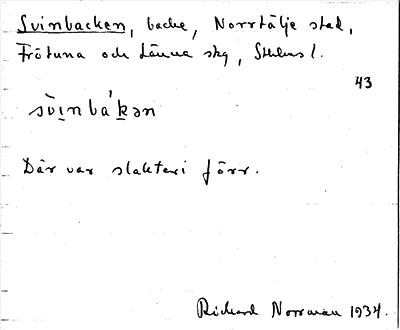 Svinbacken, backe, Norrtälje stad,
Frötuna och Länna skg, Sthlms l.
43
svi̱nbák̠ən
Där var slakteri förr.
Richard Norrman 1934.